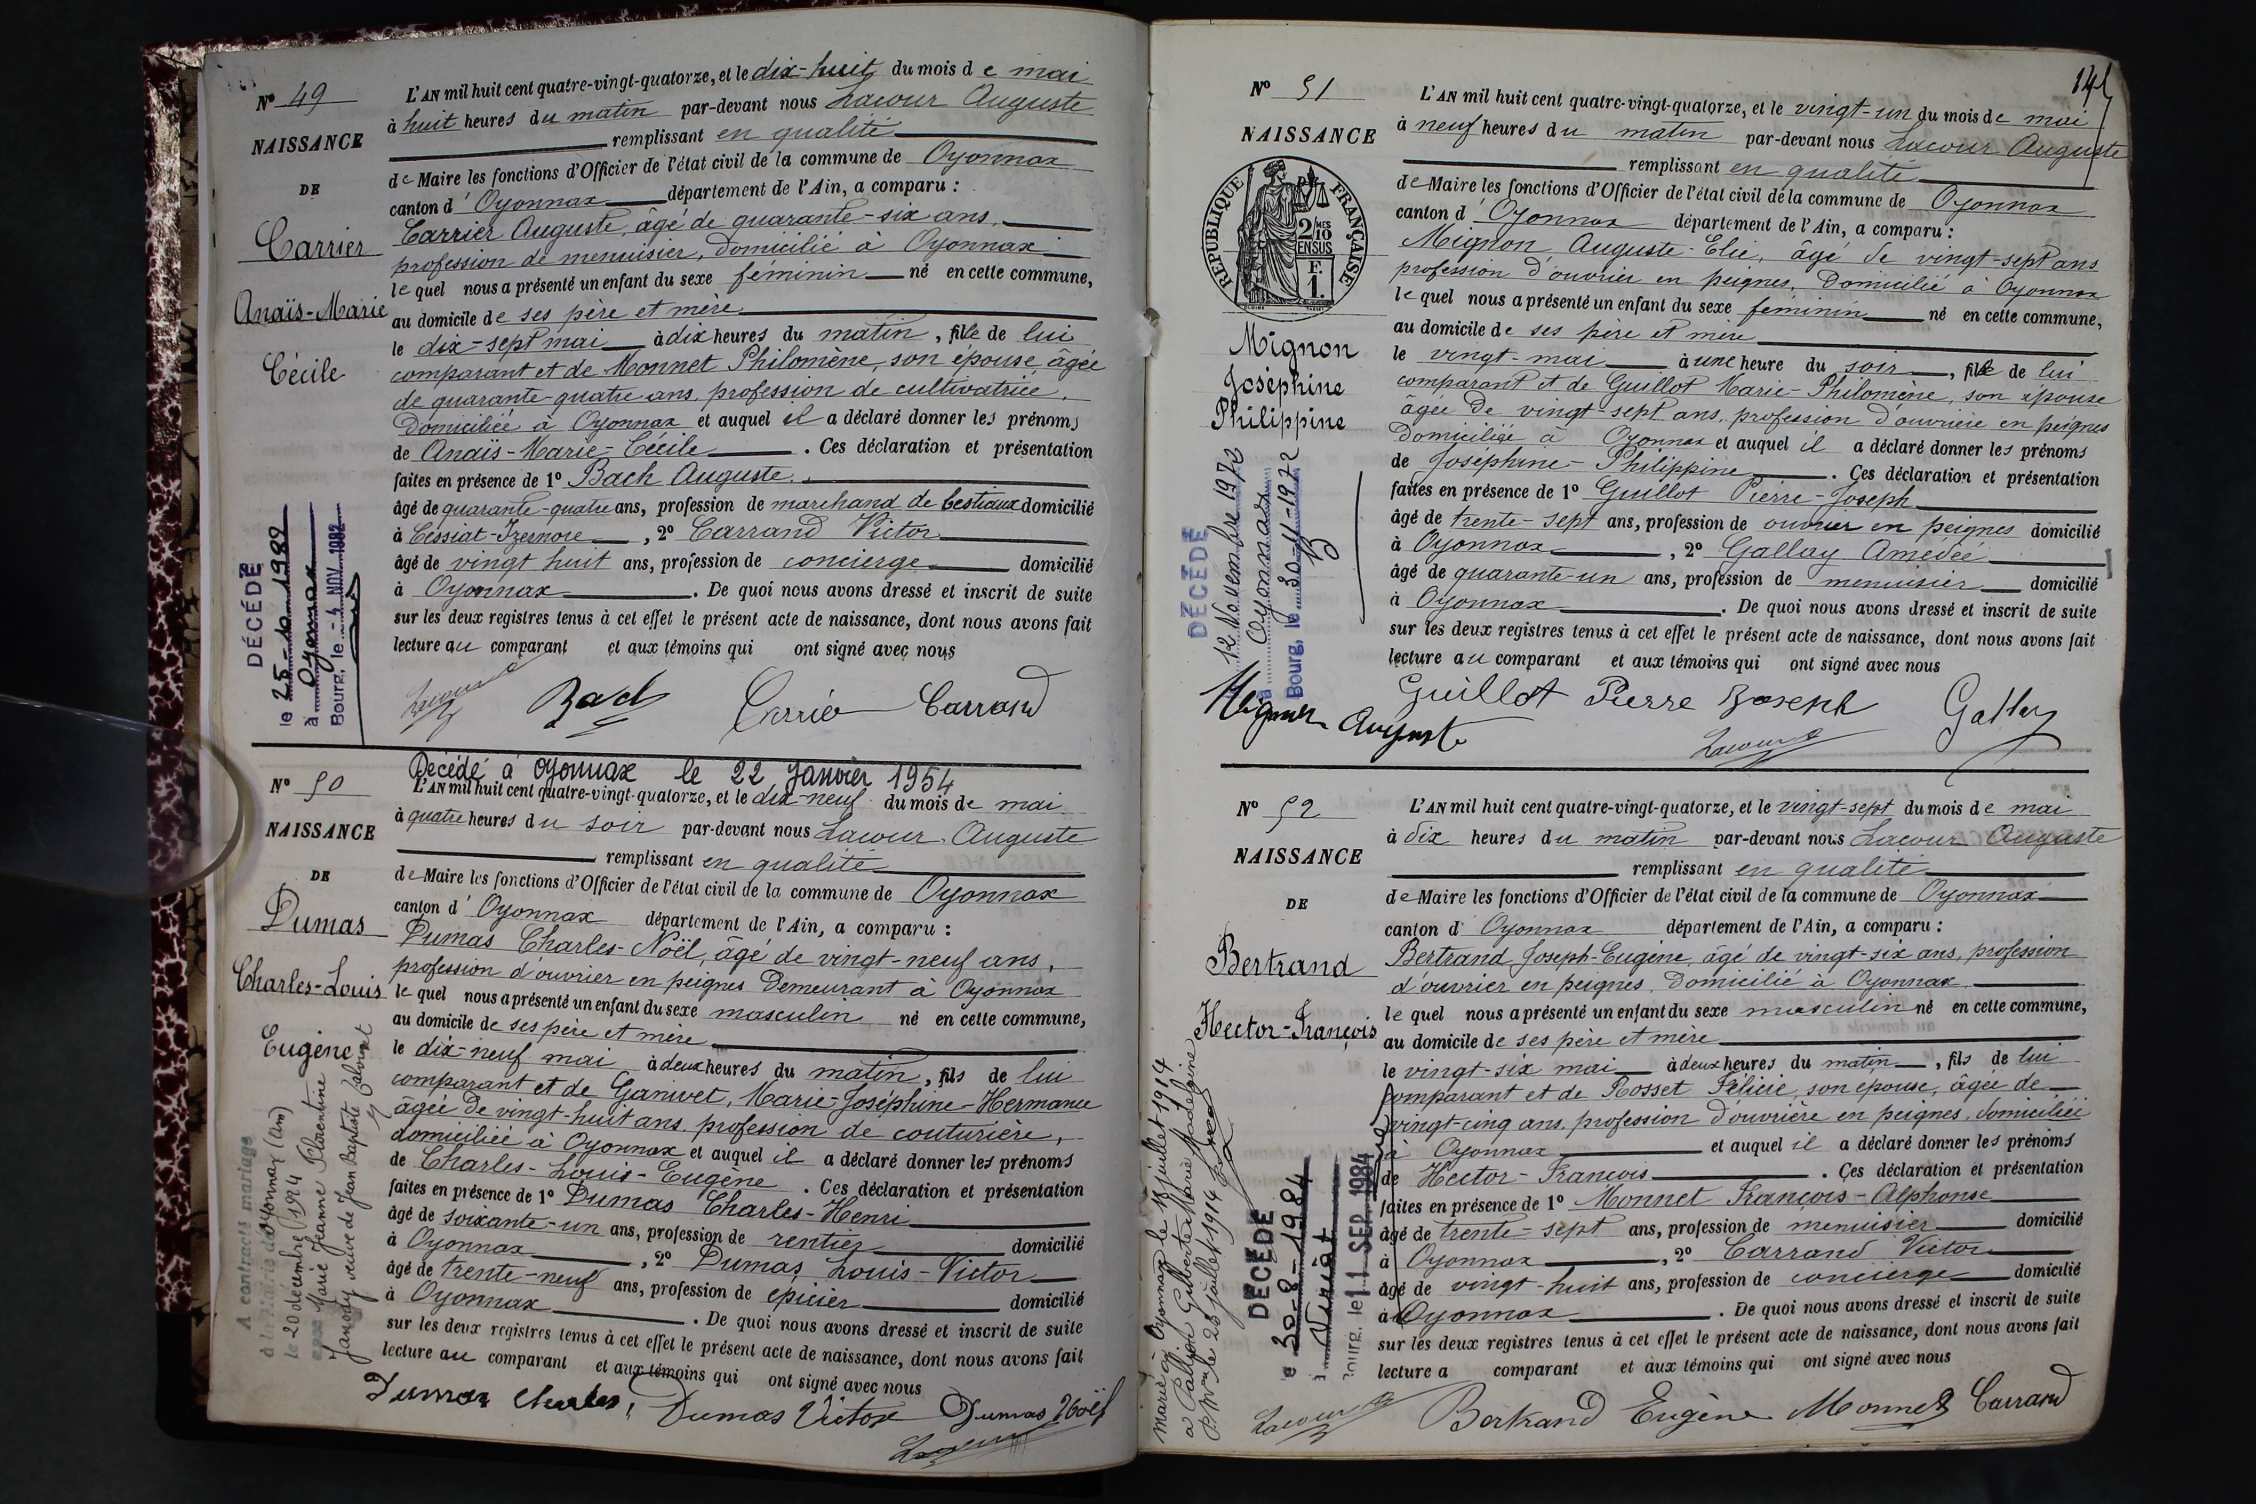 N° 49
NAISSANCE
DE
Carrier
Anaïs-Marie
Cécile
DÉCÉDÉ
le 25-10-1982
à Oyonnax
Bourg, le -4 NOV. 1982
L'AN mil huit cent quatre-vingt-quatorze, et le dix-huit du mois de mai
à huit heures du matin par-devant nous Lacour Auguste
remplissant en qualité
de Maire les fonctions d'Officier de l'état civil de la commune de Oyonnax
canton d'Oyonnax département de l'Ain, a comparu :
Carrier Auguste, âgé de quarante-six ans,
profession de menuisier, domicilié à Oyonnax
lequel nous a présenté un enfant du sexe féminin né en cette commune,
au domicile de ses père et mère
le dix-sept mai à dix heures du matin, fille de lui
comparant et de Monnet Philomène, son épouse, âgée
de quarante-quatre ans, profession de cultivatrice,
domiciliée à Oyonnax et auquel il a déclaré donner les prénoms
de Anaïs-Marie-Cécile. Ces déclaration et présentation
faites en présence de 1° Bach Auguste,
âgé de quarante-quatre ans, profession de marchand de bestiaux domicilié
à Cessiat-Izernore, 2° Carrand Victor
âgé de vingt huit ans, profession de concierge domicilié
à Oyonnax. De quoi nous avons dressé et inscrit de suite
sur les deux registres tenus à cet effet le présent acte de naissance, dont nous avons fait
lecture au comparant et aux témoins qui ont signé avec nous
Lacour Bach Carrier Carrand
N° 50
NAISSANCE
DE
Dumas
Charles-Louis
Eugène
A contracté mariage
à la Mairie de Oyonnax (Ain)
le 20 decembre 1924
avec Marie Jeanne Florentine
Jansody veuve de Jean Baptiste
Décédé à Oyonnax le 22 Janvier 1954
L'AN mil huit cent quatre-vingt-quatorze, et le dix-neuf du mois de mai
à quatre heures du soir par-devant nous Lacour Auguste
remplissant en qualité
de Maire les fonctions d'Officier de l'état civil de la commune de Oyonnax
canton d'Oyonnax département de l'Ain, a comparu :
Dumas Charles-Noël, âgé de vingt-neuf ans,
profession d'ouvrier en peignes Demeurant à Oyonnax
lequel nous a présenté un enfant du sexe masculin né en cette commune,
au domicile de ses père et mère
le dix-neuf mai à deux heures du matin, fils de lui
comparant et de Ganivet, Marie-Joséphine-Hermance
âgée de vingt-huit ans, profession de couturière,
domiciliée à Oyonnax et auquel il a déclaré donner les prénoms
de Charles-Louis-Eugène. Ces déclaration et présentation
faites en présence de 1° Dumas Charles-Henri
âgé de soixante-un ans, profession de rentier domicilié
à Oyonnax, 2° Dumas Louis-Victor
âgé de trente-neuf ans, profession de épicier domicilié
à Oyonnax. De quoi nous avons dressé et inscrit de suite
sur les deux registres tenus à cet effet le présent acte de naissance, dont nous avons fait
lecture au comparant et aux témoins qui ont signé avec nous
Dumas Charles, Dumas Victor Dumas Noël
Lacour
N° 51
NAISSANCE
RÉPUBLIQUE FRANÇAISE
2/10 MES
EN SUS
F.
1.
Mignon
Joséphine
Philippine
DÉCÉDÉ
12 Novembre 1972
à Oyonnax
Bourg, le 30-11-1972
L'AN mil huit cent quatre-vingt-quatorze, et le vingt-un du mois de mai
à neuf heures du matin par-devant nous Lacour Auguste
remplissant en qualité
de Maire les fonctions d'Officier de l'état civil de la commune de Oyonnax
canton d'Oyonnax département de l'Ain, a comparu :
Mignon Auguste-Elie, âgé de vingt-sept ans
profession d'ouvrier en peignes, Domicilié à Oyonnax
lequel nous a présenté un enfant du sexe féminin né en cette commune,
au domicile de ses père et mère
le vingt-mai à une heure du soir, fille de lui
comparant et de Guillot Marie-Philomène, son épouse
âgée de vingt-sept ans, profession d'ouvrière en peignes
Domiciliée à Oyonnax et auquel il a déclaré donner les prénoms
de Joséphine-Philippine. Ces déclaration et présentation
faites en présence de 1° Guillot Pierre-Joseph
âgé de trente-sept ans, profession de ouvrier en peignes domicilié
à Oyonnax, 2° Gallay Amédée
âgé de quarante-un ans, profession de menuisier domicilié
à Oyonnax. De quoi nous avons dressé et inscrit de suite
sur les deux registres tenus à cet effet le présent acte de naissance, dont nous avons fait
lecture au comparant et aux témoins qui ont signé avec nous
Mignon Auguste Guillot Pierre Joseph Gallay
Lacour
N° 52
NAISSANCE
DE
Bertrand
Hector-François
Marié à Oyonnax le 11 juillet 1914
à Gilberte Marie Madeleine
le 25 juillet 1914
DÉCÉDÉ
30-8-1984
à Viriat
Bourg, le 11 SEP. 1984
L'AN mil huit cent quatre-vingt-quatorze, et le vingt-sept du mois de mai
à dix heures du matin par-devant nous Lacour Auguste
remplissant en qualité
de Maire les fonctions d'Officier de l'état civil de la commune de Oyonnax
canton d'Oyonnax département de l'Ain, a comparu :
Bertrand Joseph-Eugène, âgé de vingt-six ans, profession
d'ouvrier en peignes, Domicilié à Oyonnax
lequel nous a présenté un enfant du sexe masculin né en cette commune,
au domicile de ses père et mère
le vingt-six mai à deux heures du matin, fils de lui
comparant et de Rosset Félicie, son épouse, âgée de
vingt-cinq ans, profession d'ouvrière en peignes, domiciliée
à Oyonnax et auquel il a déclaré donner les prénoms
de Hector-François. Ces déclaration et présentation
faites en présence de 1° Monnet François-Alphonse
âgé de trente-sept ans, profession de menuisier domicilié
à Oyonnax, 2° Carrand Victor
âgé de vingt-huit ans, profession de concierge domicilié
à Oyonnax. De quoi nous avons dressé et inscrit de suite
sur les deux registres tenus à cet effet le présent acte de naissance, dont nous avons fait
lecture a comparant et aux témoins qui ont signé avec nous
Lacour Bertrand Eugène Monnet Carrand